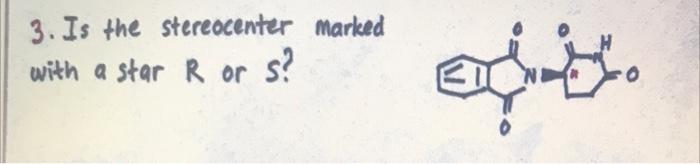 3. Is the stereocenter marked
with a star R or S?
O O H
N N O
O